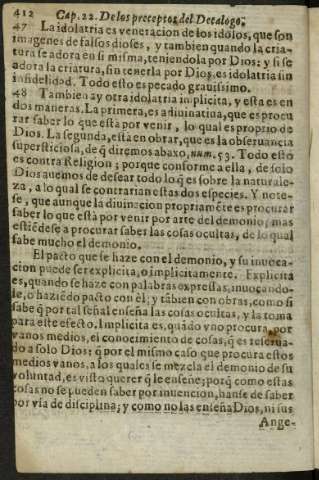 412 Cap. 22. De los preceptos del Decalogo.
47 La idolatria es veneracion de los idolos, que son
imagenes de falsos dioses, y tambien quando la cria-
tura se adora en si misma, teniendola por Dios: y si se
adora la criatura, sin tenerla por Dios, es idolatria sin
infidelidad. Todo esto es pecado gravissimo.
48 Tambien ay otra idolatria inplicita, y esta es en
dos maneras. La primera, es adiuinatiua, que es procu
rar saber lo que està por venir, lo qual es proprio de
Dios. La segunda, està en obrar, que es la obseruancia
supersticiosa, de q̃ dirèmos abaxo, num. 53. Todo esto
es contra Religion; porque conforme a ella, de solo
Dios auemos de desear todo lo q̃ es sobre la naturale-
za, a lo qual se contrarian estas dos especies. Y note-
se, que aunque la diuinacion propriamẽte es procurar
saber lo que està por venir por arte del demonio; mas
estiẽdese a procurar saber las cosas ocultas, de lo qual
sabe mucho el demonio.
El pacto que se haze con el demonio, y su inuoca-
cion puede ser explicita, o implicitamente. Explicita
es, quando se haze con palabras expressas, inuocando-
le, o haziẽdo pacto con èl; y tãbien con obras, como si
sabe q̃ por tal señal enseña las cosas ocultas, y la toma
para este efecto. Implicita es, quãdo vno procura, por
vanos medios, el conocimiento de cosas, q̃ es reserua-
do a solo Dios: q̃ por el mismo caso que procura estos
medios vanos, a los quales se mezcla el demonio de su
voluntad, es visto querer q̃ le enseñe; porq̃ como estas
cosas no se pueden saber por inuencion, hanse de saber
por via de disciplina; y como no las enseña Dios, ni sus
Ange-